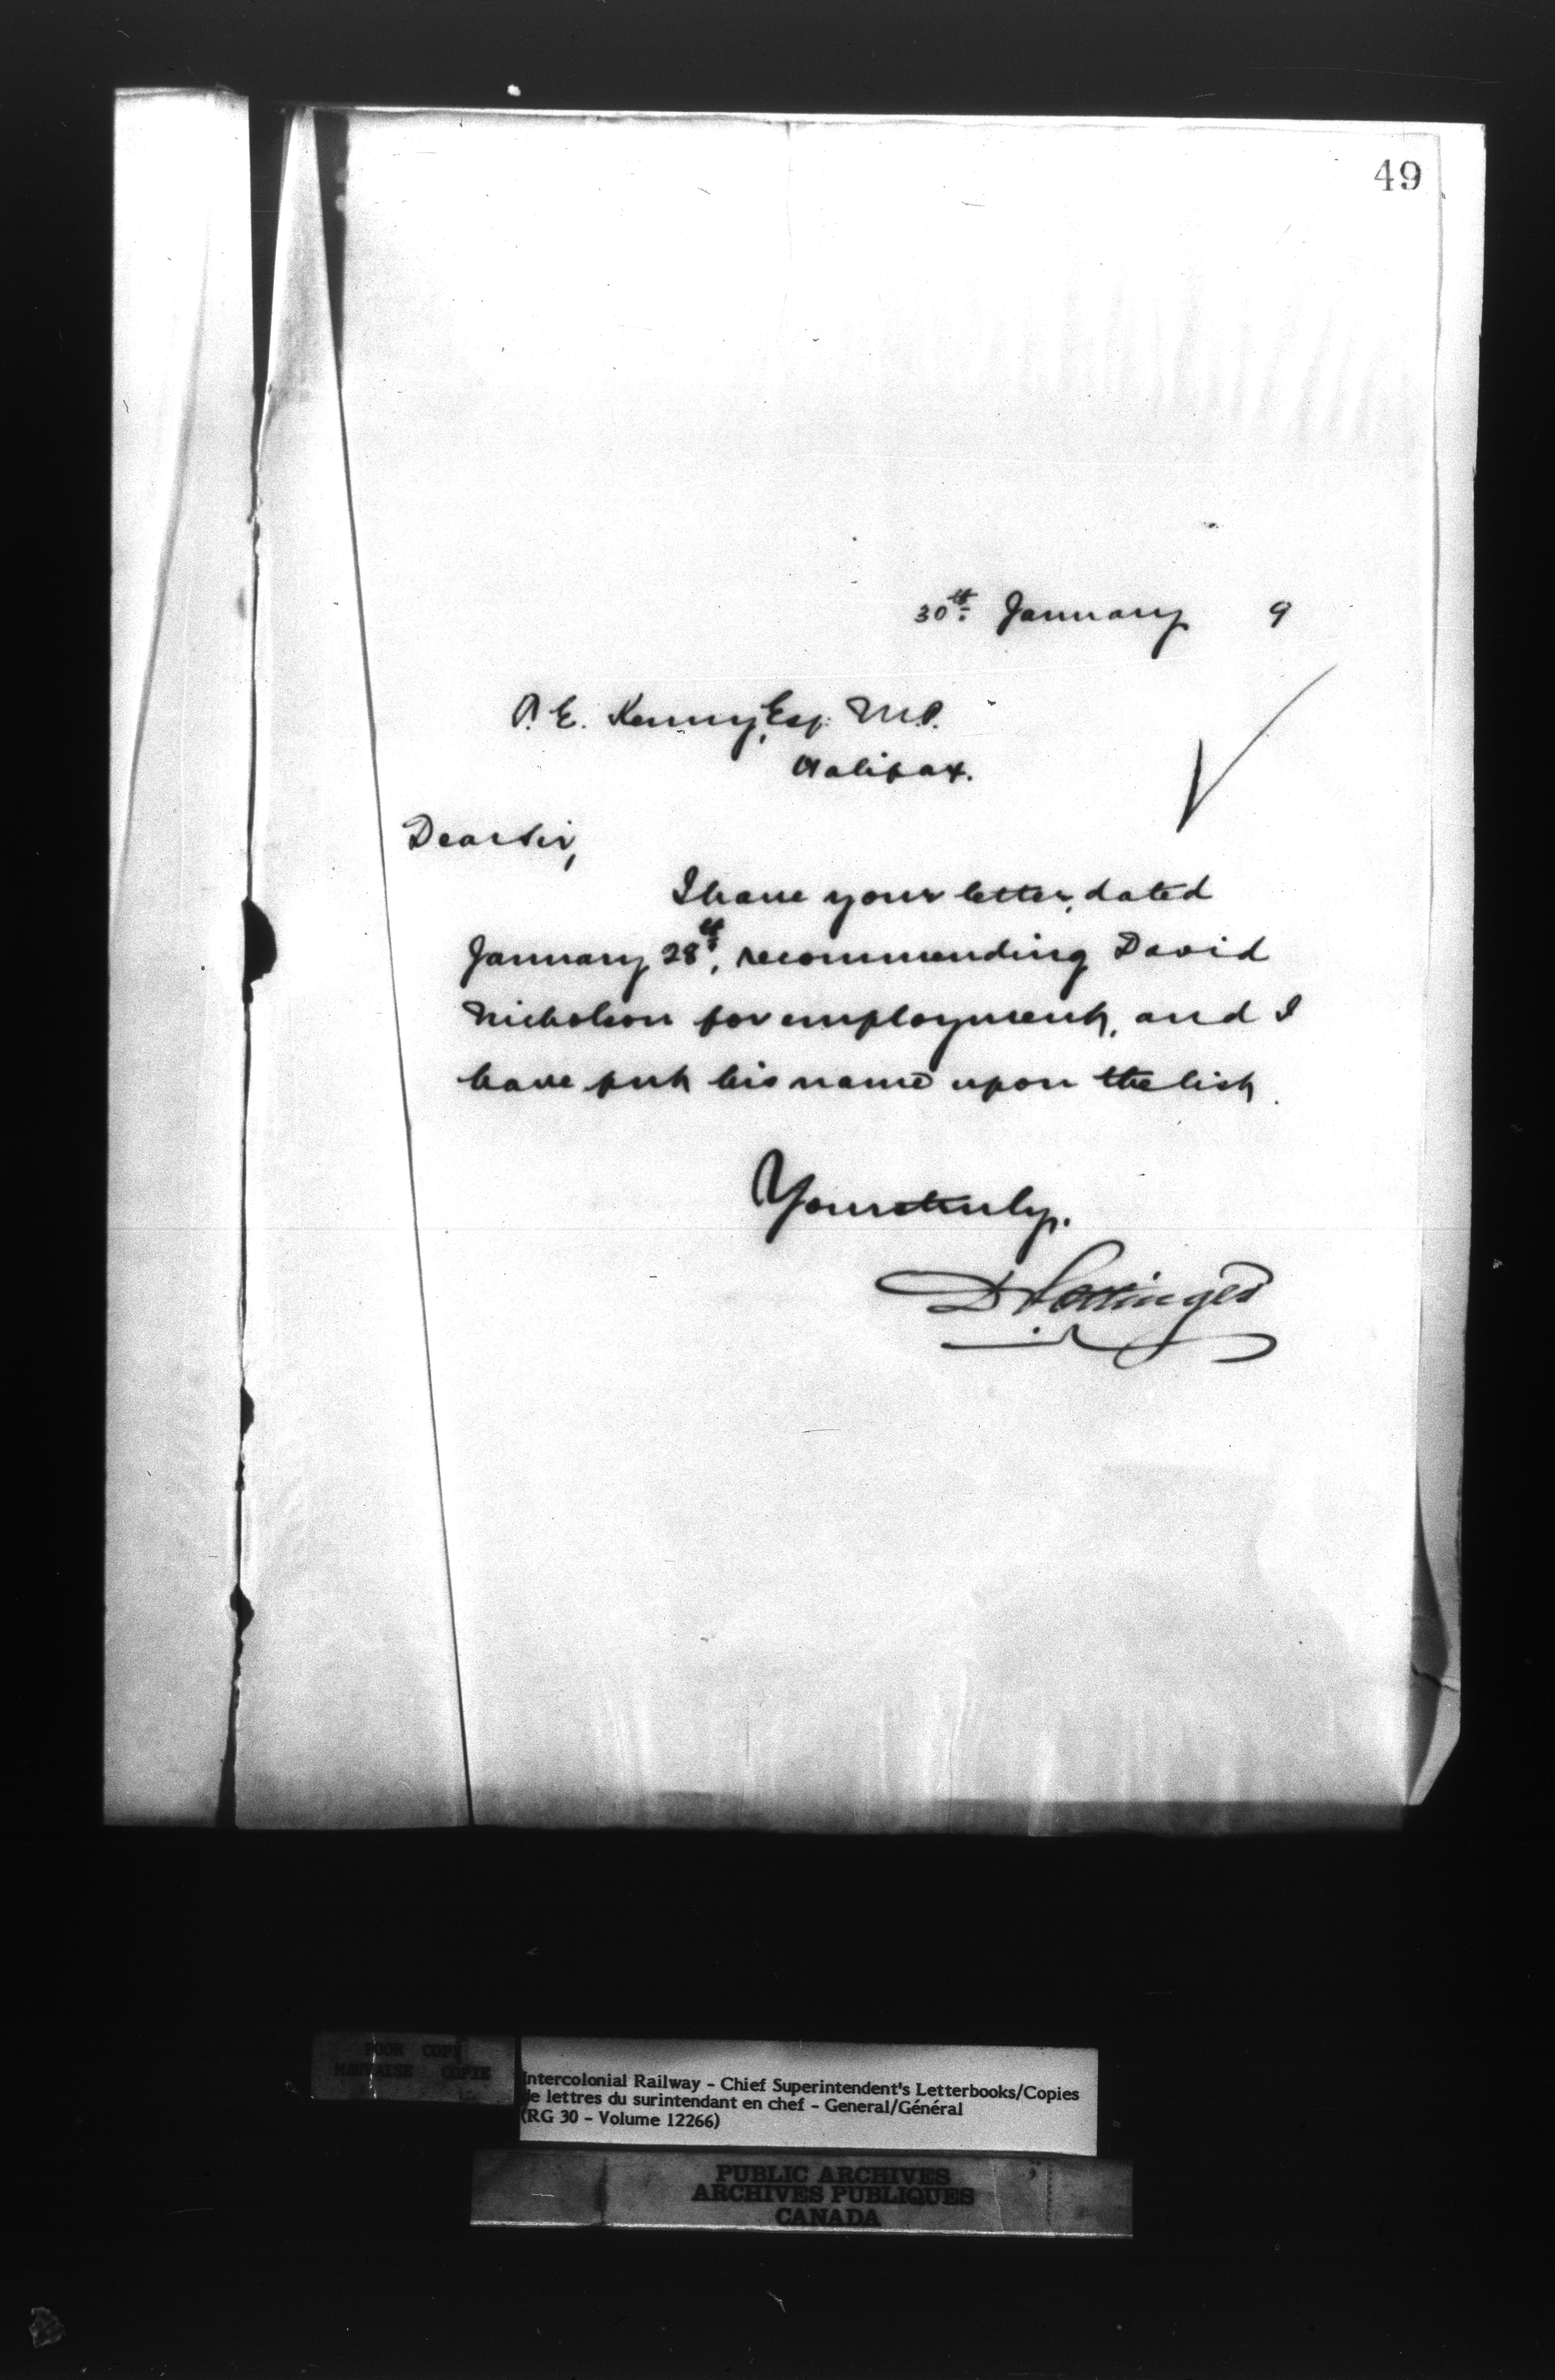 49
30th January 9
T. E. Kenny, Esq. M.P.
Halifax.
Dear Sir,
I have your letter, dated
January 28th, recommending David
Nicholson for employment, and I
have put his name upon the list.
Yours truly,
D Pottinger
POOR COPY
MAUVAISE COPIE
Intercolonial Railway - Chief Superintendent's Letterbooks/Copies
de lettres du surintendant en chef - General/Général
(RG 30 - Volume 12266)
PUBLIC ARCHIVES
ARCHIVES PUBLIQUES
CANADA